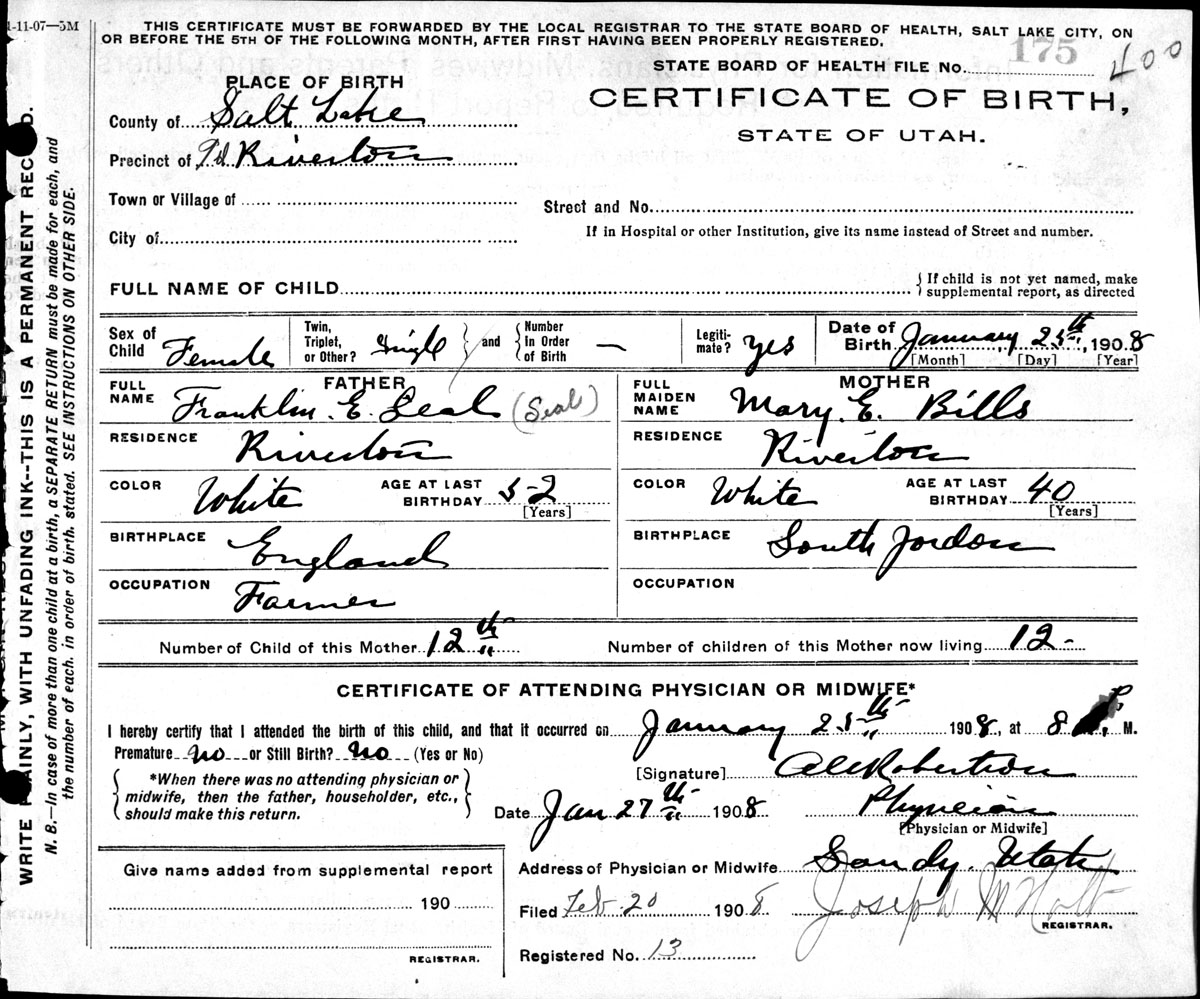 1-11-07—5M
THIS CERTIFICATE MUST BE FORWARDED BY THE LOCAL REGISTRAR TO THE STATE BOARD OF HEALTH, SALT LAKE CITY, ON
OR BEFORE THE 5TH OF THE FOLLOWING MONTH, AFTER FIRST HAVING BEEN PROPERLY REGISTERED.
STATE BOARD OF HEALTH FILE No. 175 400
PLACE OF BIRTH
CERTIFICATE OF BIRTH,
STATE OF UTAH.
County of Salt Lake
Precinct of Riverton
Town or Village of
Street and No.
City of
If in Hospital or other Institution, give its name instead of Street and number.
FULL NAME OF CHILD
{ If child is not yet named, make
supplemental report, as directed
Sex of Child Female
Twin, Triplet, or Other? Single } and { Number In Order of Birth —
Legiti-mate? yes
Date of Birth January 25th, 1908
[Month] [Day] [Year]
FATHER
FULL NAME Franklin. E. Seal (Seal)
RESIDENCE Riverton
COLOR White AGE AT LAST BIRTHDAY 52 [Years]
BIRTHPLACE England
OCCUPATION Farmer
MOTHER
FULL MAIDEN NAME Mary. E. Bills
RESIDENCE Riverton
COLOR White AGE AT LAST BIRTHDAY 40 [Years]
BIRTHPLACE South Jordon
OCCUPATION
Number of Child of this Mother 12th
Number of children of this Mother now living 12-
CERTIFICATE OF ATTENDING PHYSICIAN OR MIDWIFE*
I hereby certify that I attended the birth of this child, and that it occurred on January 25th 1908, at 8 P. M.
Premature no or Still Birth? no (Yes or No)
*When there was no attending physician or
midwife, then the father, householder, etc.,
should make this return.
[Signature] Robertson
Date Jan 27th 1908 Physician
[Physician or Midwife]
Give name added from supplemental report
190
REGISTRAR.
Address of Physician or Midwife Sandy. Utah
Filed Feb 20 1908 Joseph M Holt
REGISTRAR.
Registered No. 13
WRITE PLAINLY, WITH UNFADING INK--THIS IS A PERMANENT RECORD.
N. B.—In case of more than one child at a birth, a SEPARATE RETURN must be made for each, and
the number of each, in order of birth, stated. SEE INSTRUCTIONS ON OTHER SIDE.